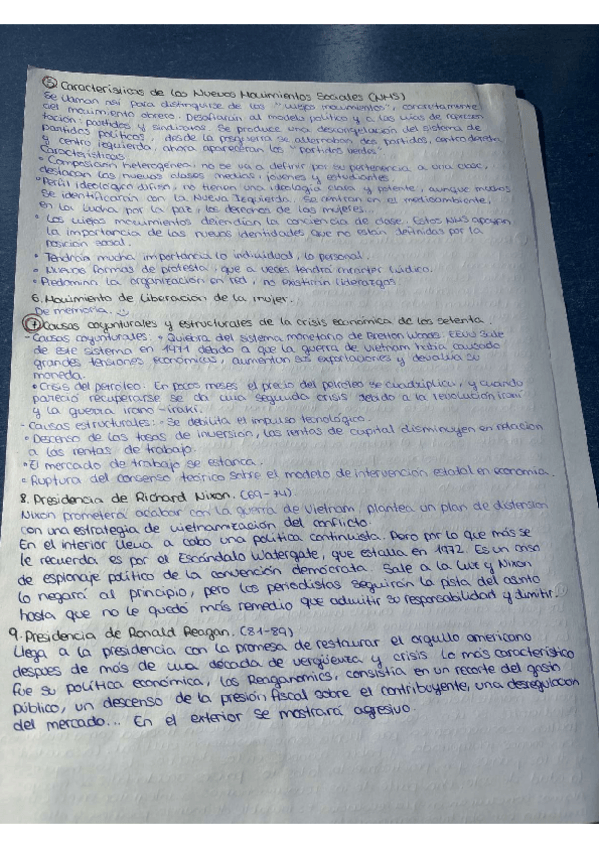 ⑤ Características de los Nuevos Movimientos Sociales (NMS)
Se llaman así para distinguirse de los "viejos movimientos", concretamente
del movimiento obrero. Desafiarán al modelo político y a las vías de represen
tación: partidos y sindicatos. Se produce una descongelación del sistema de
partidos políticos, desde la posguerra se alternaban dos partidos, centro derecha
y centro izquierda, ahora aparecerán los "partidos verdes"
Características:
• Composición heterogénea, no se va a definir por su pertenencia a una clase,
destacan las nuevas clases medias, jóvenes y estudiantes.
• Perfil ideológico difuso, no tienen una ideología clara y potente, aunque muchos
se identificarán con la Nueva Izquierda. Se centran en el medioambiente,
en la lucha por la paz, los derechos de las mujeres...
• Los viejos movimientos defendían la conciencia de clase. Estos NMS apoyan
la importancia de las nuevas identidades que no están definidas por la
posición social.
• Tendrá mucha importancia lo individual, lo personal.
• Nuevas formas de protesta, que a veces tendrá carácter lúdico.
• Predomina la organización en red, no existirán liderazgos.
6. Movimiento de liberación de la mujer.
De memoria. :)
⑦ Causas coyunturales y estructurales de la crisis económica de los setenta
- Causas coyunturales: • Quiebra del sistema monetario de Bretton Woods. EEUU sale
de este sistema en 1971 debido a que la guerra de Vietnam había causado
grandes tensiones económicas, aumentan sus exportaciones y devalúa su
moneda.
• Crisis del petróleo. En pocos meses el precio del petróleo se cuadruplica, y cuando
pareció recuperarse se da una segunda crisis debido a la revolución iraní
y la guerra irano-irakí.
- Causas estructurales: • Se debilita el impulso tecnológico.
• Descenso de las tasas de inversión, las rentas de capital disminuyen en relación
a las rentas de trabajo.
• El mercado de trabajo se estanca.
• Ruptura del consenso teórico sobre el modelo de intervención estatal en economía.
8. Presidencia de Richard Nixon. (69-74).
Nixon prometerá acabar con la guerra de Vietnam, plantea un plan de distensión
con una estrategia de vietnamización del conflicto.
En el interior lleva a cabo una política continuista. Pero por lo que más se
le recuerda es por el Escándalo Watergate, que estalla en 1972. Es un caso
de espionaje político de la convención demócrata. Sale a la luz y Nixon
lo negará al principio, pero los periodistas seguirán la pista del asunto
hasta que no le quedó más remedio que admitir su responsabilidad y dimitir.
9. Presidencia de Ronald Reagan. (81-89)
Llega a la presidencia con la promesa de restaurar el orgullo americano
despues de más de una década de vergüenza y crisis. Lo más característico
fue su política económica, las Reaganomics, consistía en un recorte del gasto
público, un descenso de la presión fiscal sobre el contribuyente, una desregulación
del mercado... En el exterior se mostrará agresivo.